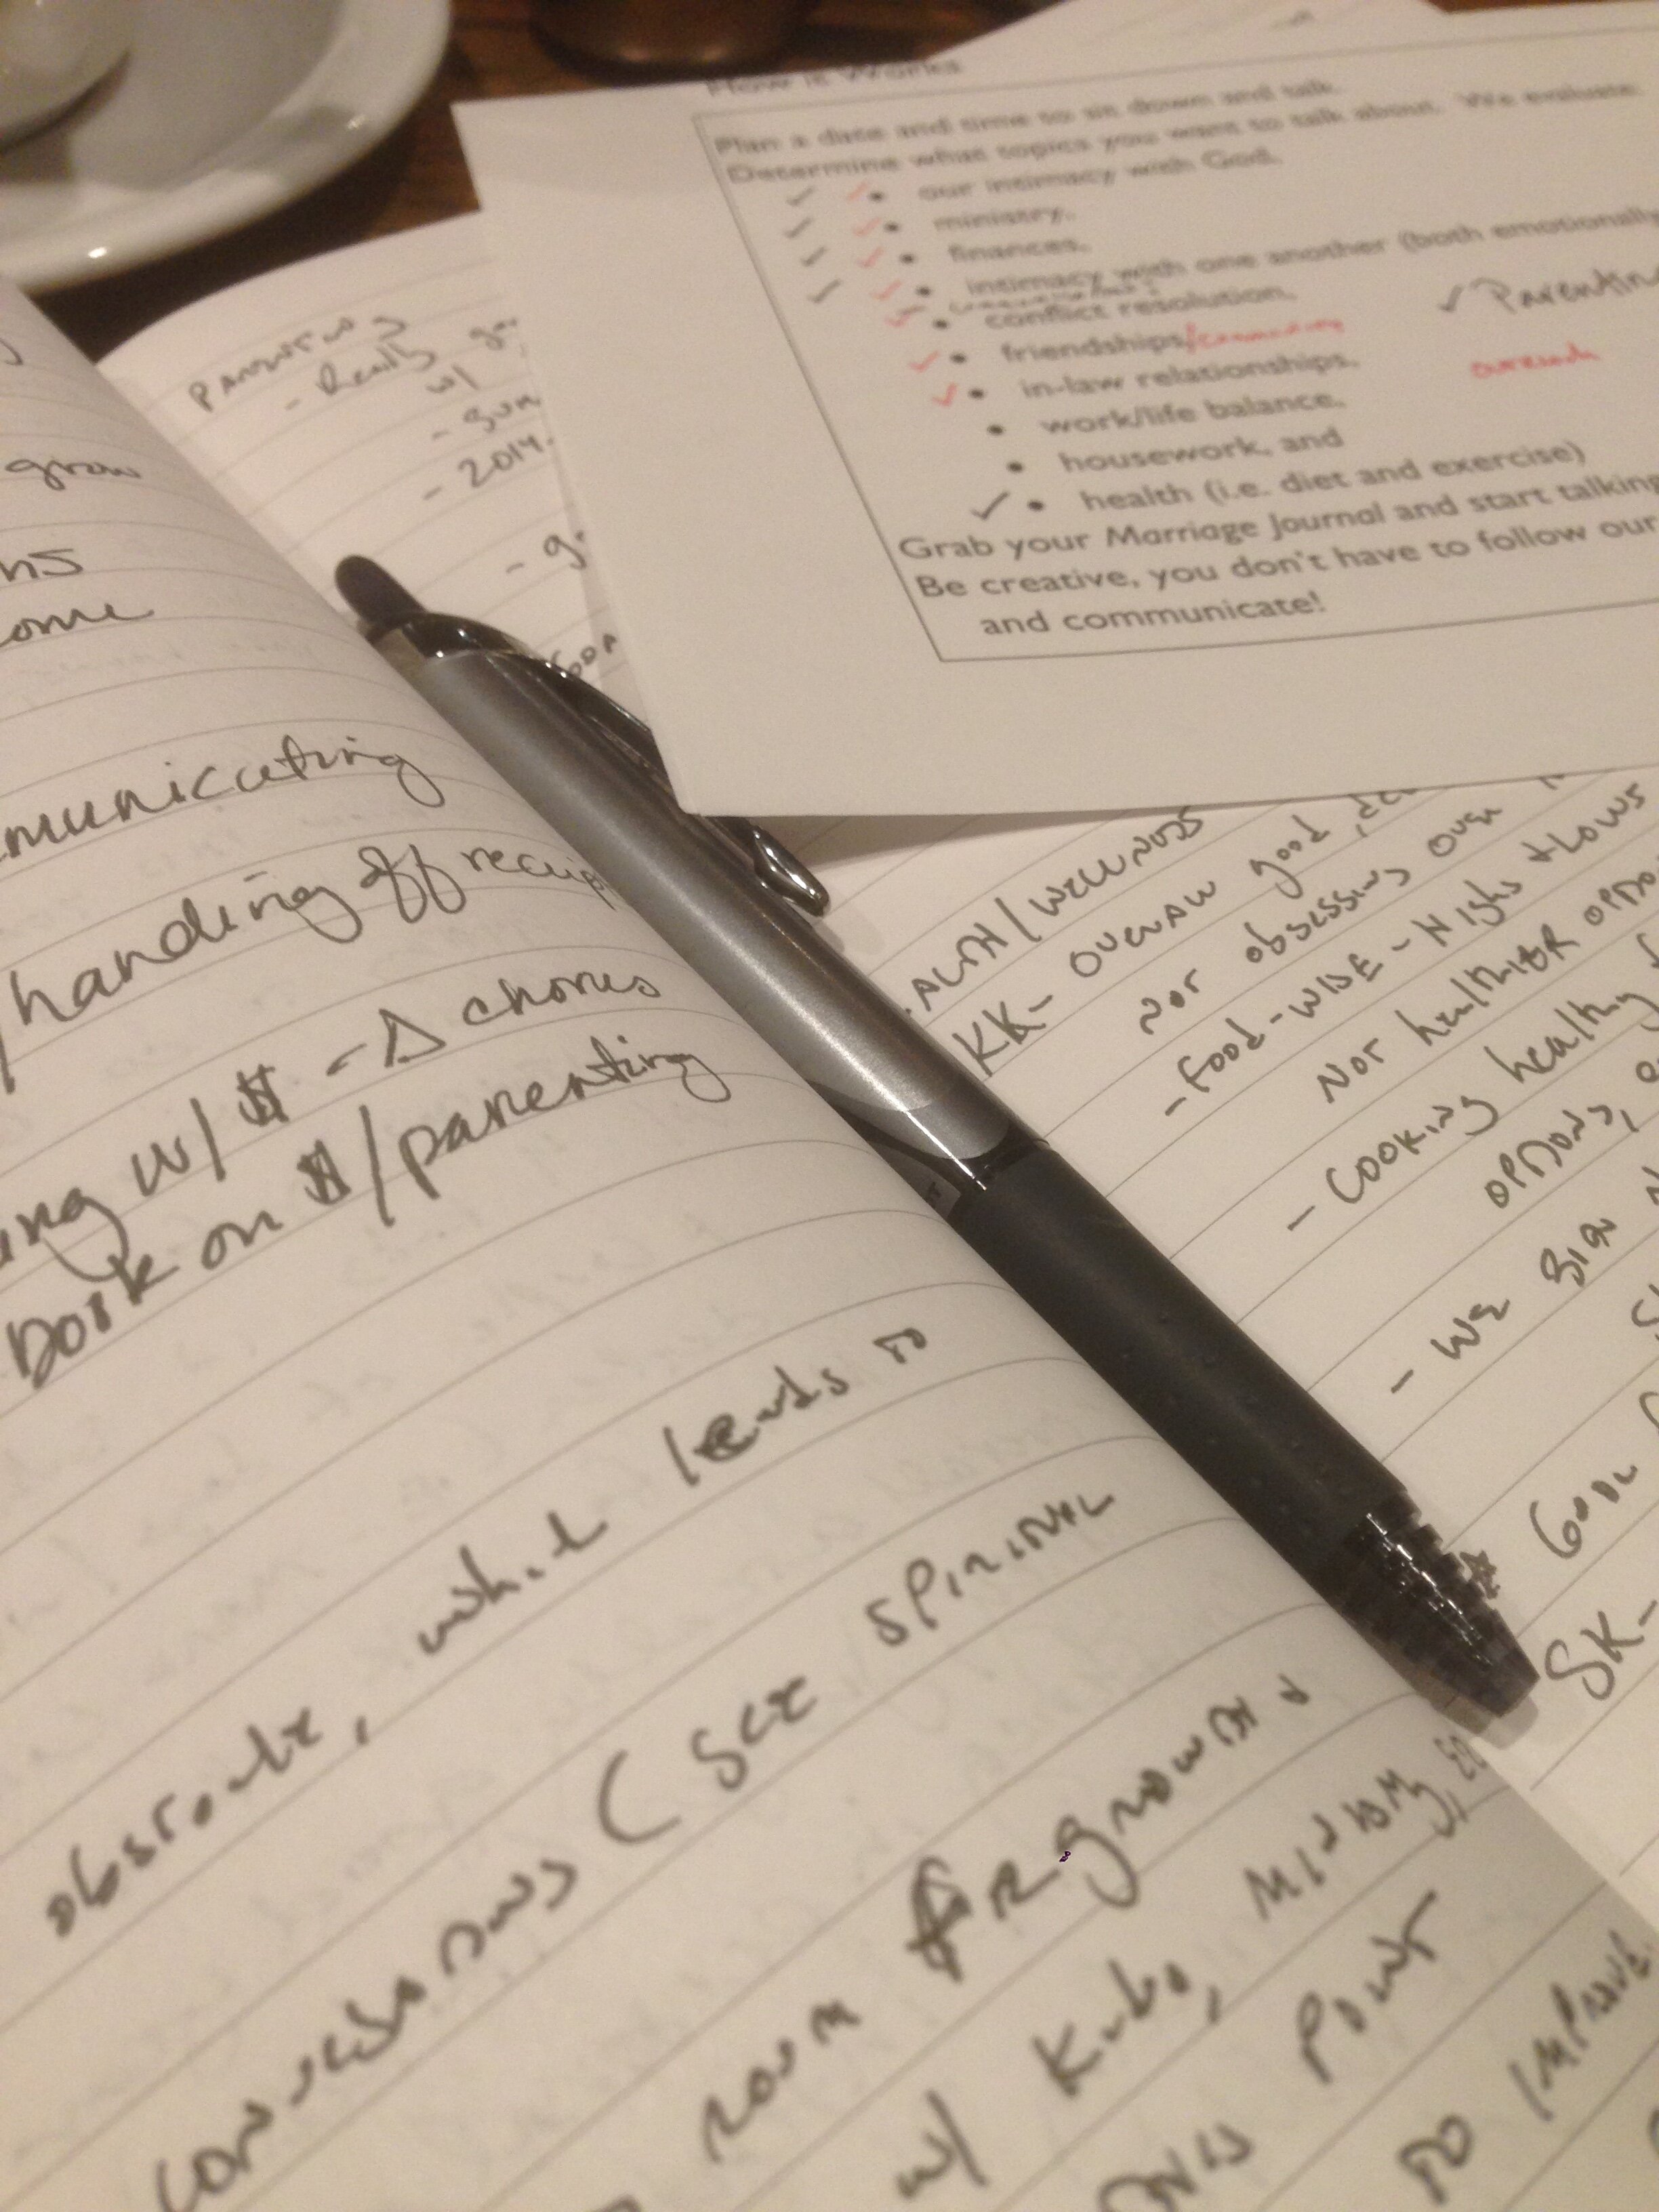 How it Works
Plan a date and time to sit down and talk.
Determine what topics you want to talk about. We evaluate:
• our intimacy with God,
• ministry,
• finances,
• intimacy with one another (both emotionally
• conflict resolution,
✓ Parentin
• friendships/community
• in-law relationships,
outreach
• work/life balance,
• housework, and
• health (i.e. diet and exercise)
Grab your Marriage Journal and start talking
Be creative, you don't have to follow our
and communicate!
Parenting
- Really
w/
- 2014
grow
ns
ome
municating
/handing off receip
ing w/ $ - Δ chores
Book on $/parenting
obstacle, which leads to
conversations (see spiritual
room for growth &
w/ Kids, Midtown,
this point
to improve
ALTH/WELLNESS
KK- OVERALL good,
NOT obsessing over
- Food-WISE - Highs & Lows
NOT healthier option
- Cooking healthy
options,
- We
GOAL
SK-